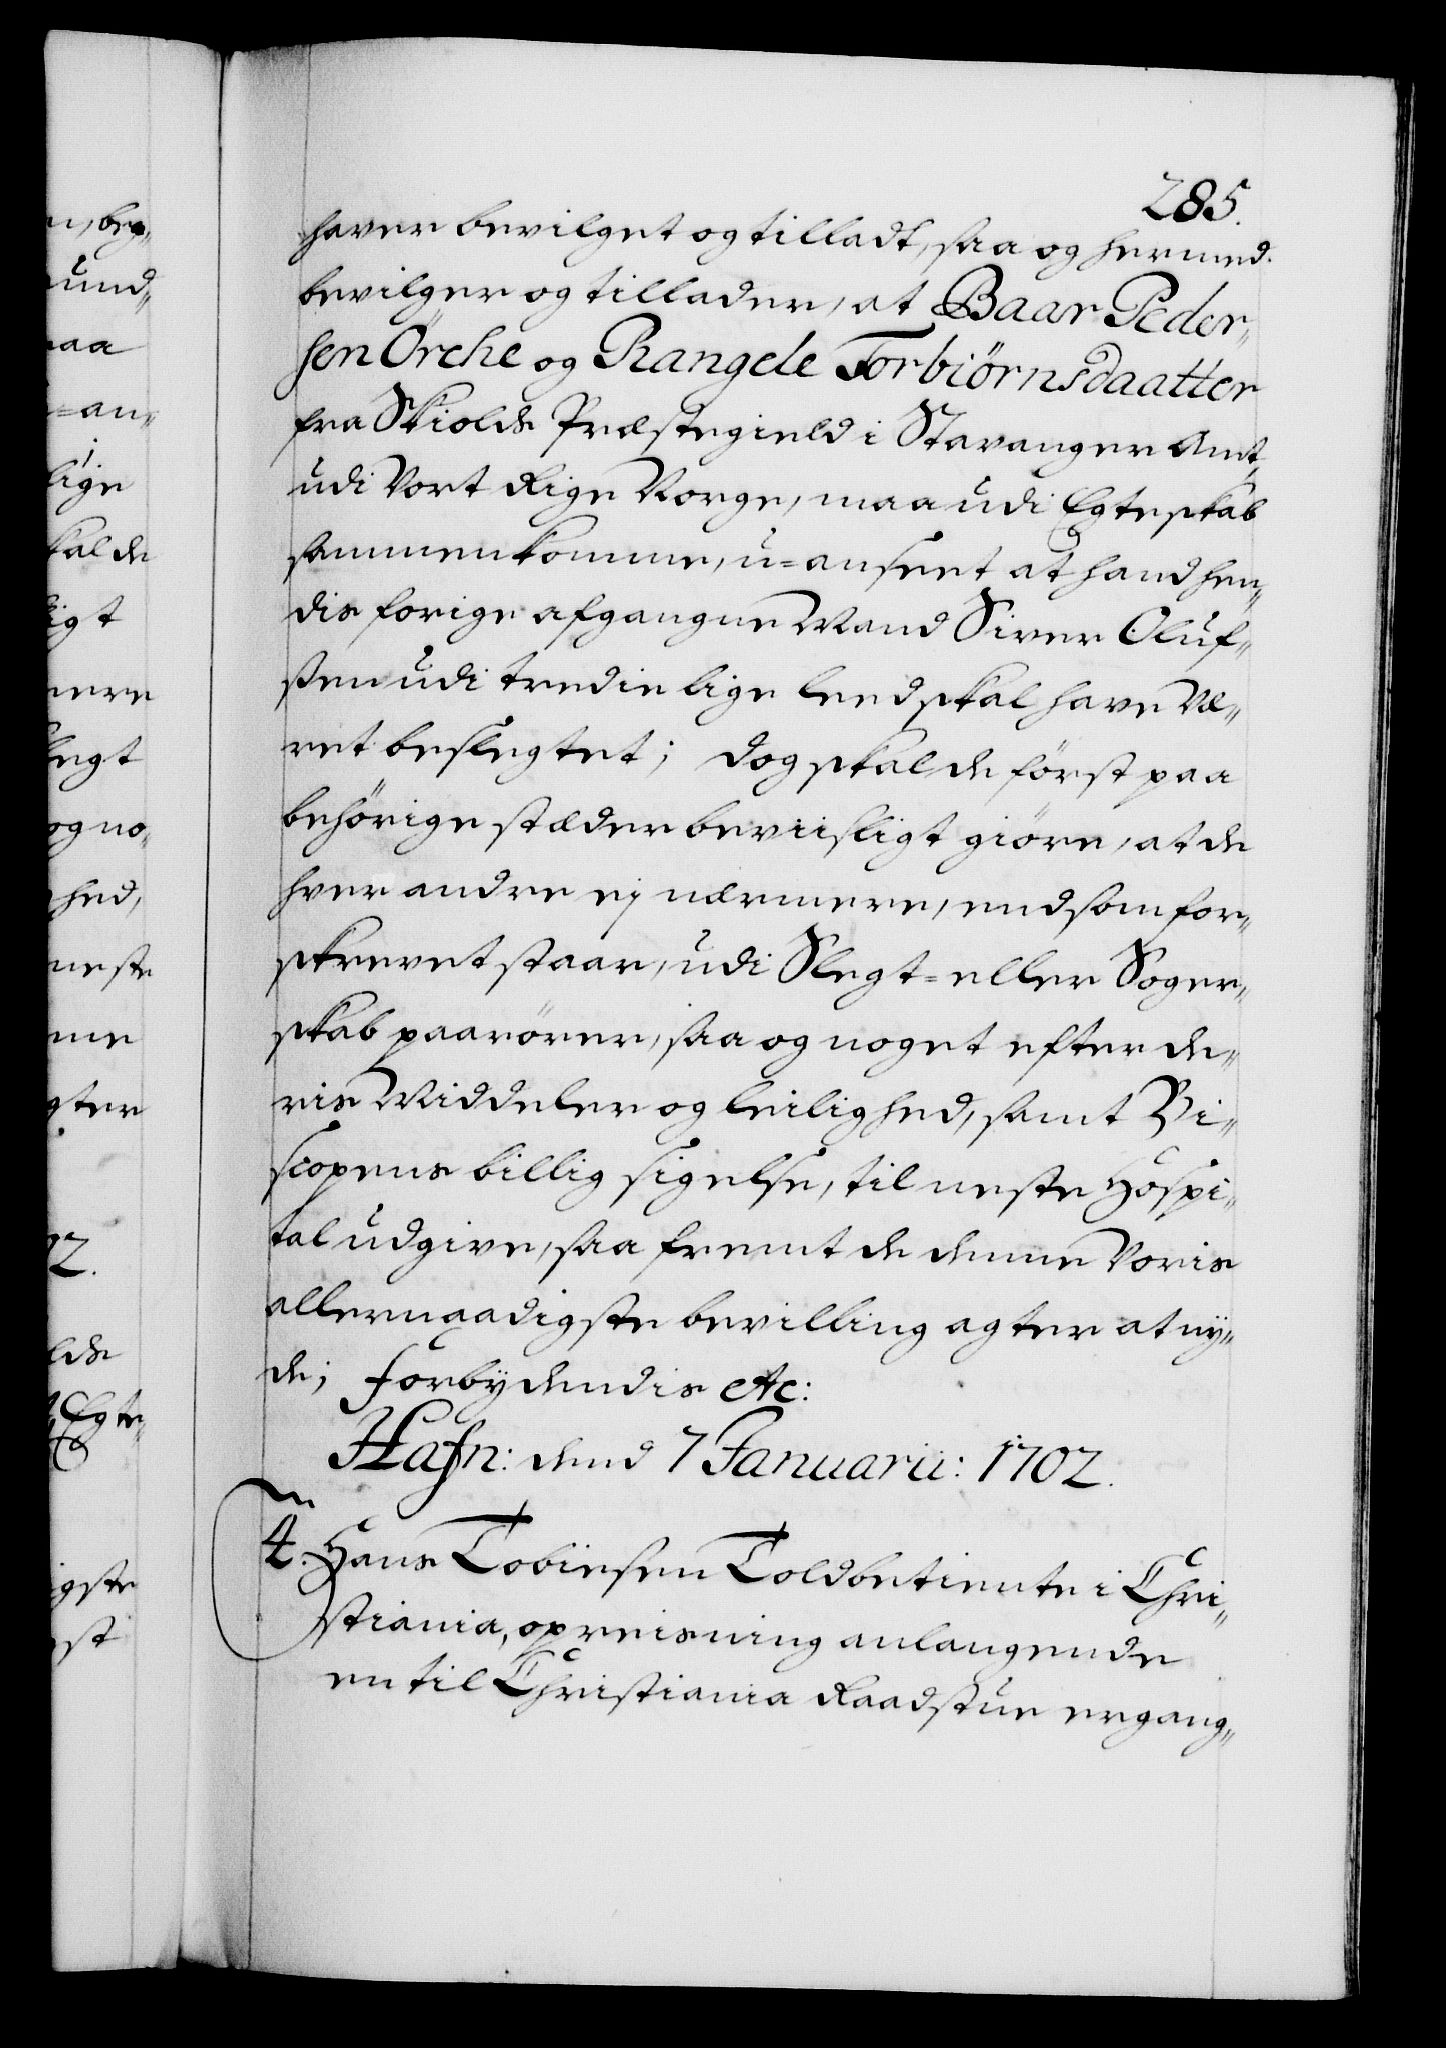 285.
haver bevilget og tilladt, saa og hermed
bevilger og tillader, at Baar Peder„
sen Örche og Rangele Torbiörnsdaatter
fra Skiolde Præstegield i Stavanger Amt
udi Vort Rige Norge, maa udi Egteskab
sammenkomme, u=anseet at hand hen„
dis forige afgangne Mand Siver Oluf„
sen udi tredie lige leed skal have væ„
ret beslegtet; dog skal de först paa
behörige stæder beviisligt giöre, at de
hver andre ej nærmere, end som for„
skrevet staar, udi Slegt= eller Soger„
skab paarörer, saa og noget efter de„
ris Middeler og leilighed, samt Bi„
scopens billig sigelse, til neste Hospi„
tal udgive, saa fremt de denne Voris
allernaadigste bevilling agter at ny„
de; Forbydendis etc:
Hafn: dend 7 Januarii: 1702.
4. Hans Tobiesen Toldbetiente i Chri„
stiania, opreisning anlangende
en til Christiania Raadstue ergang„